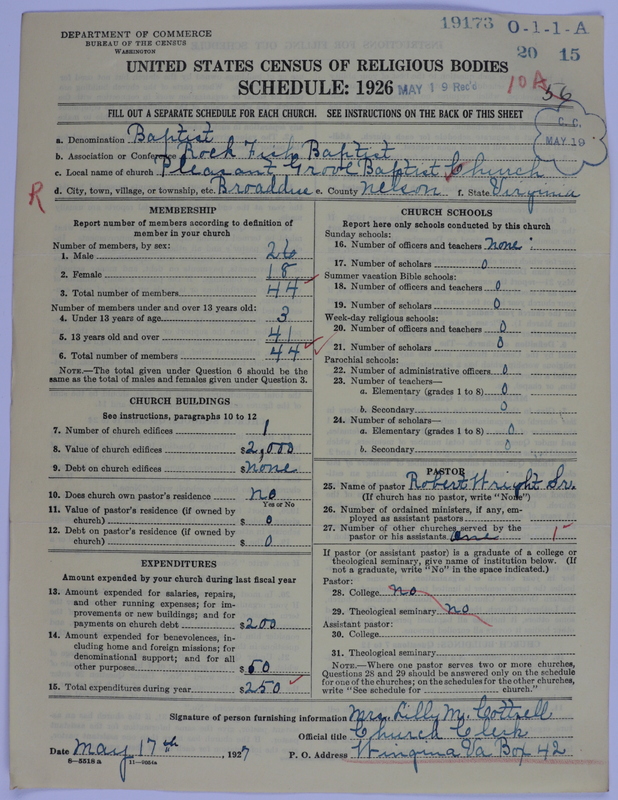 19173 0-1-1-A
20 15
10A 56
DEPARTMENT OF COMMERCE
BUREAU OF THE CENSUS
WASHINGTON
UNITED STATES CENSUS OF RELIGIOUS BODIES
SCHEDULE: 1926 MAY 19 Rec'd
C. C.
MAY 19
FILL OUT A SEPARATE SCHEDULE FOR EACH CHURCH. SEE INSTRUCTIONS ON THE BACK OF THIS SHEET
a. Denomination Baptist
b. Association or Conference Rock Fish Baptist
c. Local name of church Pleasant Grove Baptist Church
R d. City, town, village, or township, etc. Broaddus e. County Nelson f. State Virginia
MEMBERSHIP
Report number of members according to definition of
member in your church
Number of members, by sex:
1. Male 26
2. Female 18
3. Total number of members 44
Number of members under and over 13 years old:
4. Under 13 years of age 3
5. 13 years old and over 41
6. Total number of members 44
NOTE.—The total given under Question 6 should be the
same as the total of males and females given under Question 3.
CHURCH BUILDINGS
See instructions, paragraphs 10 to 12
7. Number of church edifices 1
8. Value of church edifices $2,000
9. Debt on church edifices $none
10. Does church own pastor's residence no
Yes or No
11. Value of pastor's residence (if owned by
church) $ 0
12. Debt on pastor's residence (if owned by
church) $ 0
EXPENDITURES
Amount expended by your church during last fiscal year
13. Amount expended for salaries, repairs,
and other running expenses; for im-
provements or new buildings; and for
payments on church debt $200
14. Amount expended for benevolences, in-
cluding home and foreign missions; for
denominational support; and for all
other purposes $50
15. Total expenditures during year $250
CHURCH SCHOOLS
Report here only schools conducted by this church
Sunday schools:
16. Number of officers and teachers none
17. Number of scholars 0
Summer vacation Bible schools:
18. Number of officers and teachers 0
19. Number of scholars 0
Week-day religious schools:
20. Number of officers and teachers 0
21. Number of scholars 0
Parochial schools:
22. Number of administrative officers 0
23. Number of teachers—
a. Elementary (grades 1 to 8) 0
b. Secondary 0
24. Number of scholars—
a. Elementary (grades 1 to 8) 0
b. Secondary 0
PASTOR
25. Name of pastor Robert Wright Sr.
(If church has no pastor, write "None")
26. Number of ordained ministers, if any, em-
ployed as assistant pastors
27. Number of other churches served by the
pastor or his assistants one 1
If pastor (or assistant pastor) is a graduate of a college or
theological seminary, give name of institution below. (If
not a graduate, write "No" in the space indicated.)
Pastor:
28. College no
29. Theological seminary no
Assistant pastor:
30. College
31. Theological seminary
NOTE.—Where one pastor serves two or more churches,
Questions 28 and 29 should be answered only on the schedule
for one of the churches; on the schedules for the other churches,
write "See schedule for church."
Signature of person furnishing information Mrs. Lilly M. Cottrell
Official title Church Clerk
Date May 17th, 1927 P. O. Address Wingina Va Box 42
8—5518 a 11—9054a